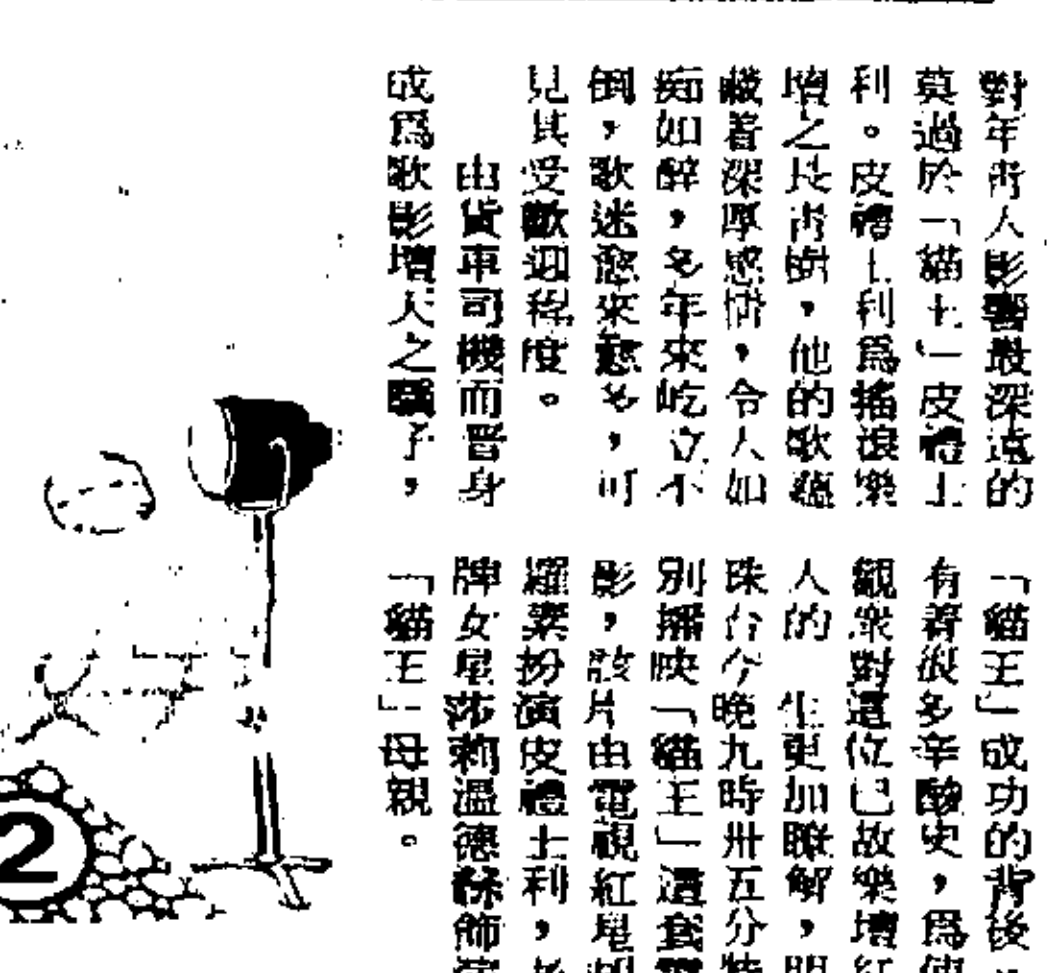 對年青人影響最深遠的
莫過於「貓王」皮禮士
利。皮禮士利爲搖滾樂
壇之長青樹，他的歌蘊
藏着深厚感情，令人如
痴如醉，多年來屹立不
倒，歌迷愈來愈多，可
見其受歡迎程度。
由貨車司機而晋身
成爲歌影壇天之驕子，
「貓王」成功的背後，
有着很多辛酸史，爲使
觀衆對這位已故樂壇紅
人的一生更加瞭解，明
珠台今晚九時卅五分特
別播映「貓王」這套電
影，該片由電視紅星
羅素扮演皮禮士利，
牌女星莎莉溫德絲飾演
「貓王」母親。
2